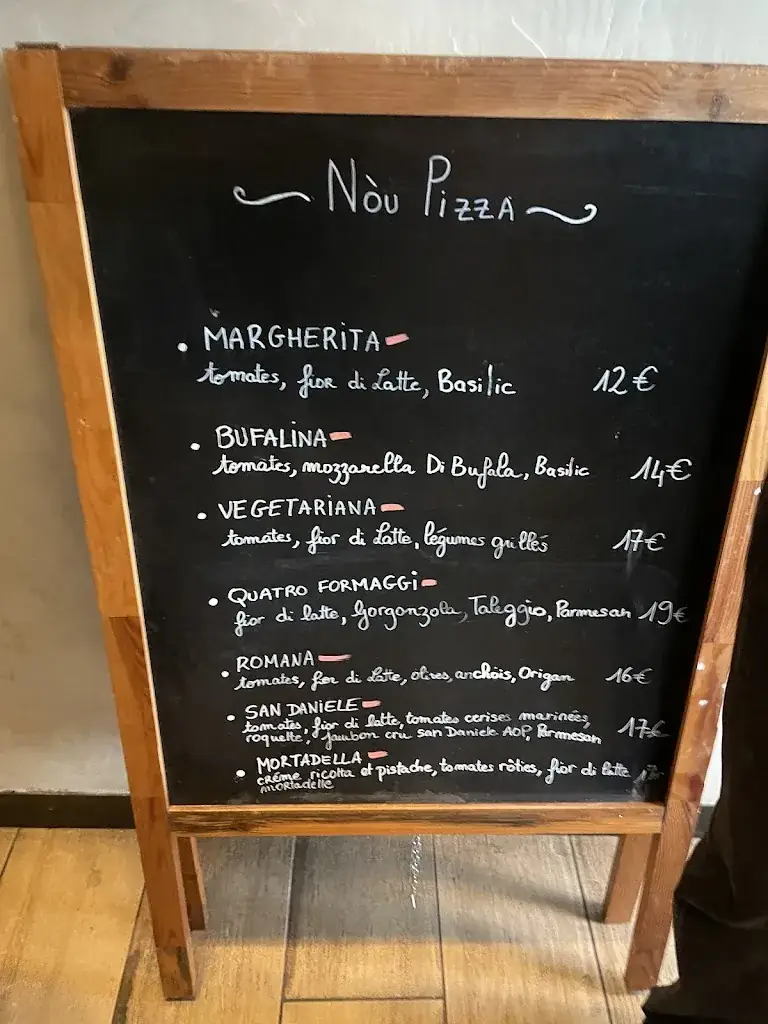 Nòu Pizza
MARGHERITA
tomates, fior di latte, Basilic 12€
BUFALINA
tomates, mozzarella Di Bufala, Basilic 14€
VEGETARIANA
tomates, fior di latte, légumes grillés 17€
QUATRO FORMAGGI
fior di latte, Gorgonzola, Taleggio, Parmesan 19€
ROMANA
tomates, fior di latte, olives, anchois, Origan 16€
SAN DANIELE
tomates, fior di latte, tomates cerises marinées,
roquette, jambon cru san Daniele AOP, Parmesan 17€
MORTADELLA
crème ricotta et pistache, tomates rôties, fior di latte
mortadelle